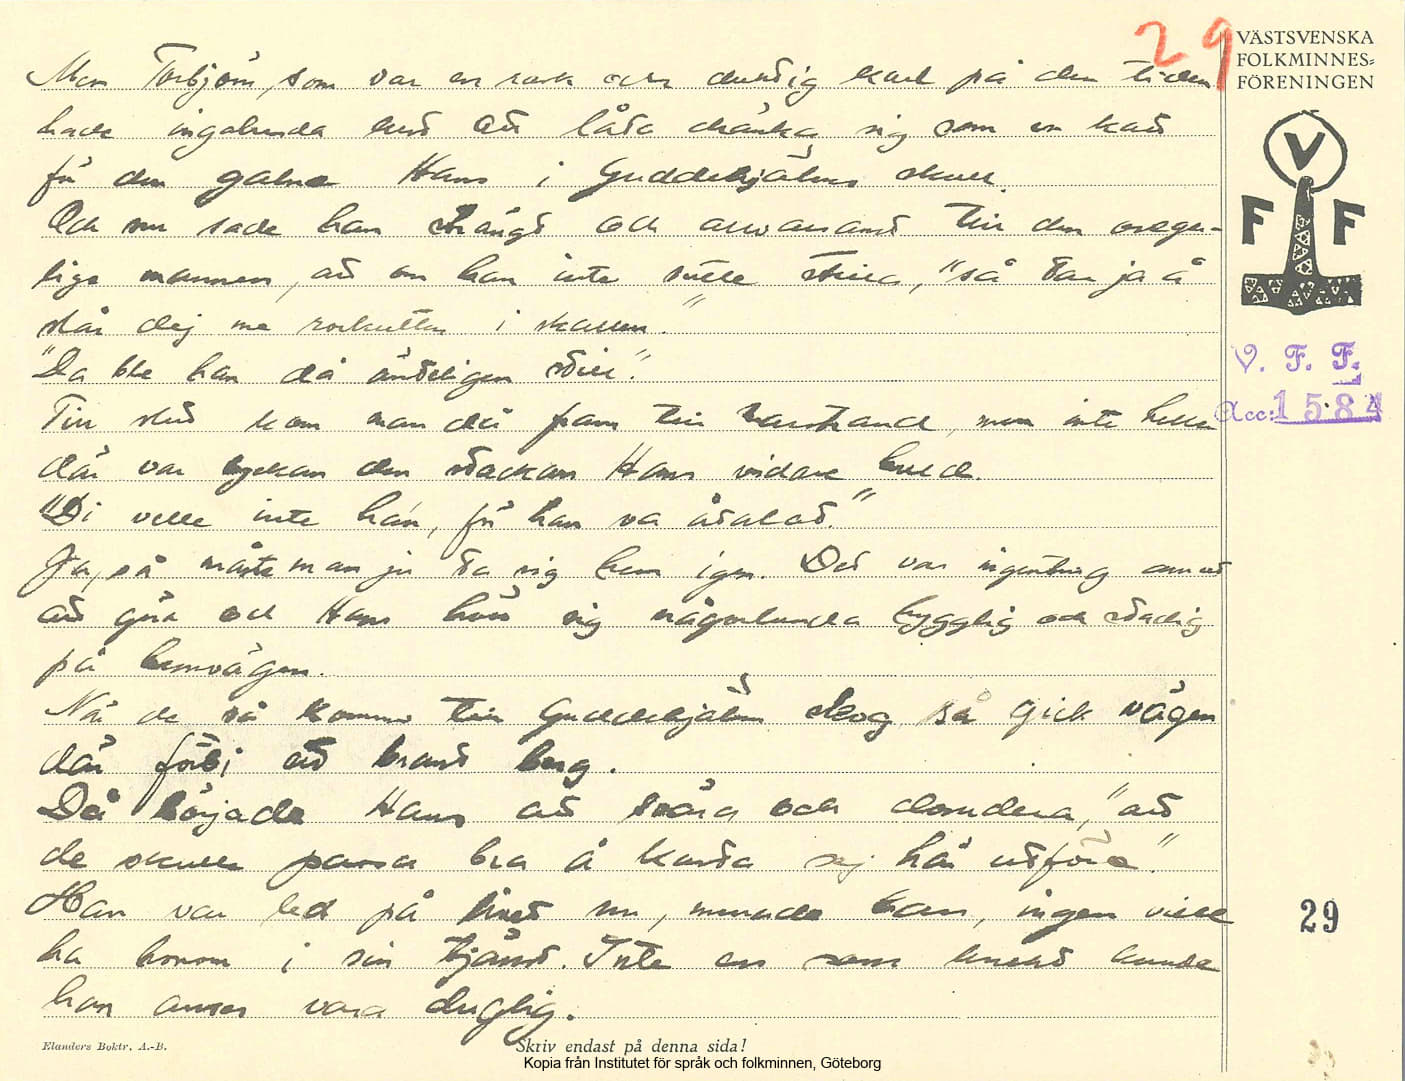 29
VÄSTSVENSKA
FOLKMINNES=
FÖRENINGEN
V
F F
V. F. F.
Acc: 1584
Men Torbjörn, som var en rask och duktig karl på den tiden
hade ingalunda lust att låta dränka sig som en katt
för den galne Hans i Guddehjälms skull.
Och nu sade han strängt och allvarsamt till den oregerlige
mannen, att om han inte sutte stilla, "så tar ja å
slår dej me rorkulten i skallen."
"Da ble han då äntligen still".
Till slut kom man då fram till Marstrand, men inte heller
där var lyckan den stackars Hans vidare huld.
"Di velle inte ha'n, för han va åtalad."
Ja, så måste man ju ta sig hem igen. Det var ingenting annat
att göra och Hans höll sig någorlunda hygglig och stadig
på hemvägen.
När de så kommo till Guddehjälms skog så gick vägen
där förbi ett brant berg.
Då började Hans att svära och domdera, "att
de skulle passa bra å kasta sej här utföre".
Han var led på livet nu, menade han, ingen ville
ha honom i sin tjänst. Inte en som knekt kunde
han anses vara duglig.
29
Elanders Boktr. A.-B.
Skriv endast på denna sida!
Kopia från Institutet för språk och folkminnen, Göteborg